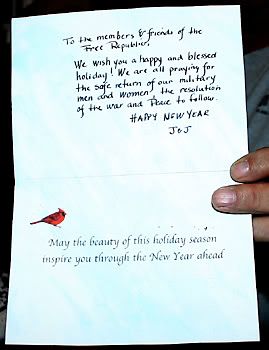 To the members & friends of the
Free Republic,
We wish you a happy and blessed
holiday! We are all praying for
the safe return of our military
men and women, the resolution
of the war and Peace to follow.
HAPPY NEW YEAR
J&J
May the beauty of this holiday season
inspire you through the New Year ahead